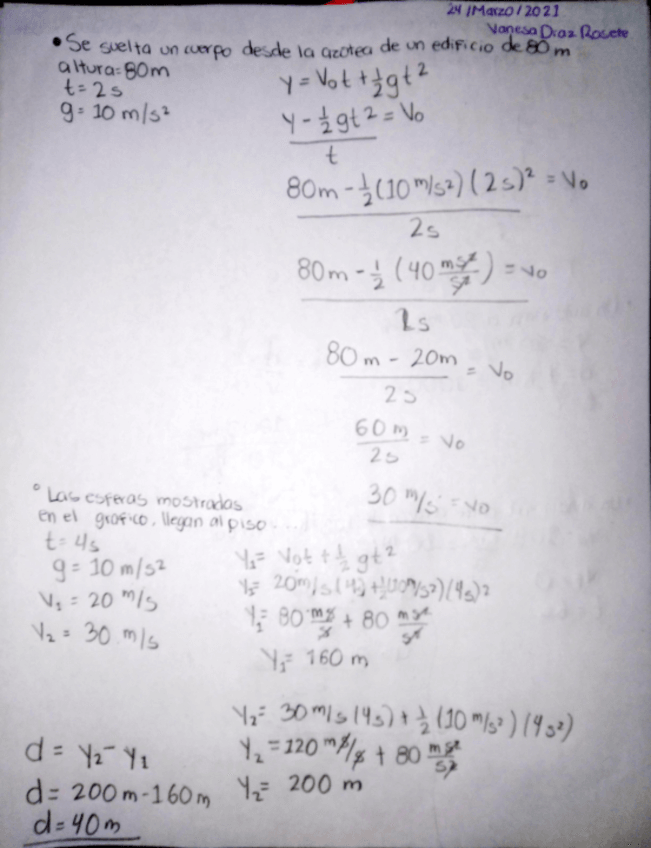 24/Marzo/2021
Vanesa Diaz Rosete
• Se suelta un cuerpo desde la azotea de un edificio de 80 m
altura=80m
t=2s
g=10 m/s²
y = Vot + ½gt²
y - ½gt² = Vo
t
80m - ½(10 m/s²)(2s)² = Vo
2s
80m - ½ (40 ms²/s²) = vo
2s
80m - 20m = Vo
2s
60 m = Vo
2s
30 m/s = vo
° Las esferas mostradas
en el grafico, llegan al piso....
t=4s
g=10 m/s²
V₁ = 20 m/s
V₂ = 30 m/s
Y₁= Vot + ½ gt²
Y₁= 20m/s (4s) + ½(10m/s²)(4s)2
Y₁= 80 ms/s + 80 ms²/s²
Y₁= 160 m
Y₂= 30 m/s (4s) + ½ (10 m/s²)(4s²)
Y₂ = 120 ms/s + 80 ms²/s²
Y₂= 200 m
d = Y₂ - Y₁
d = 200m-160m
d=40m